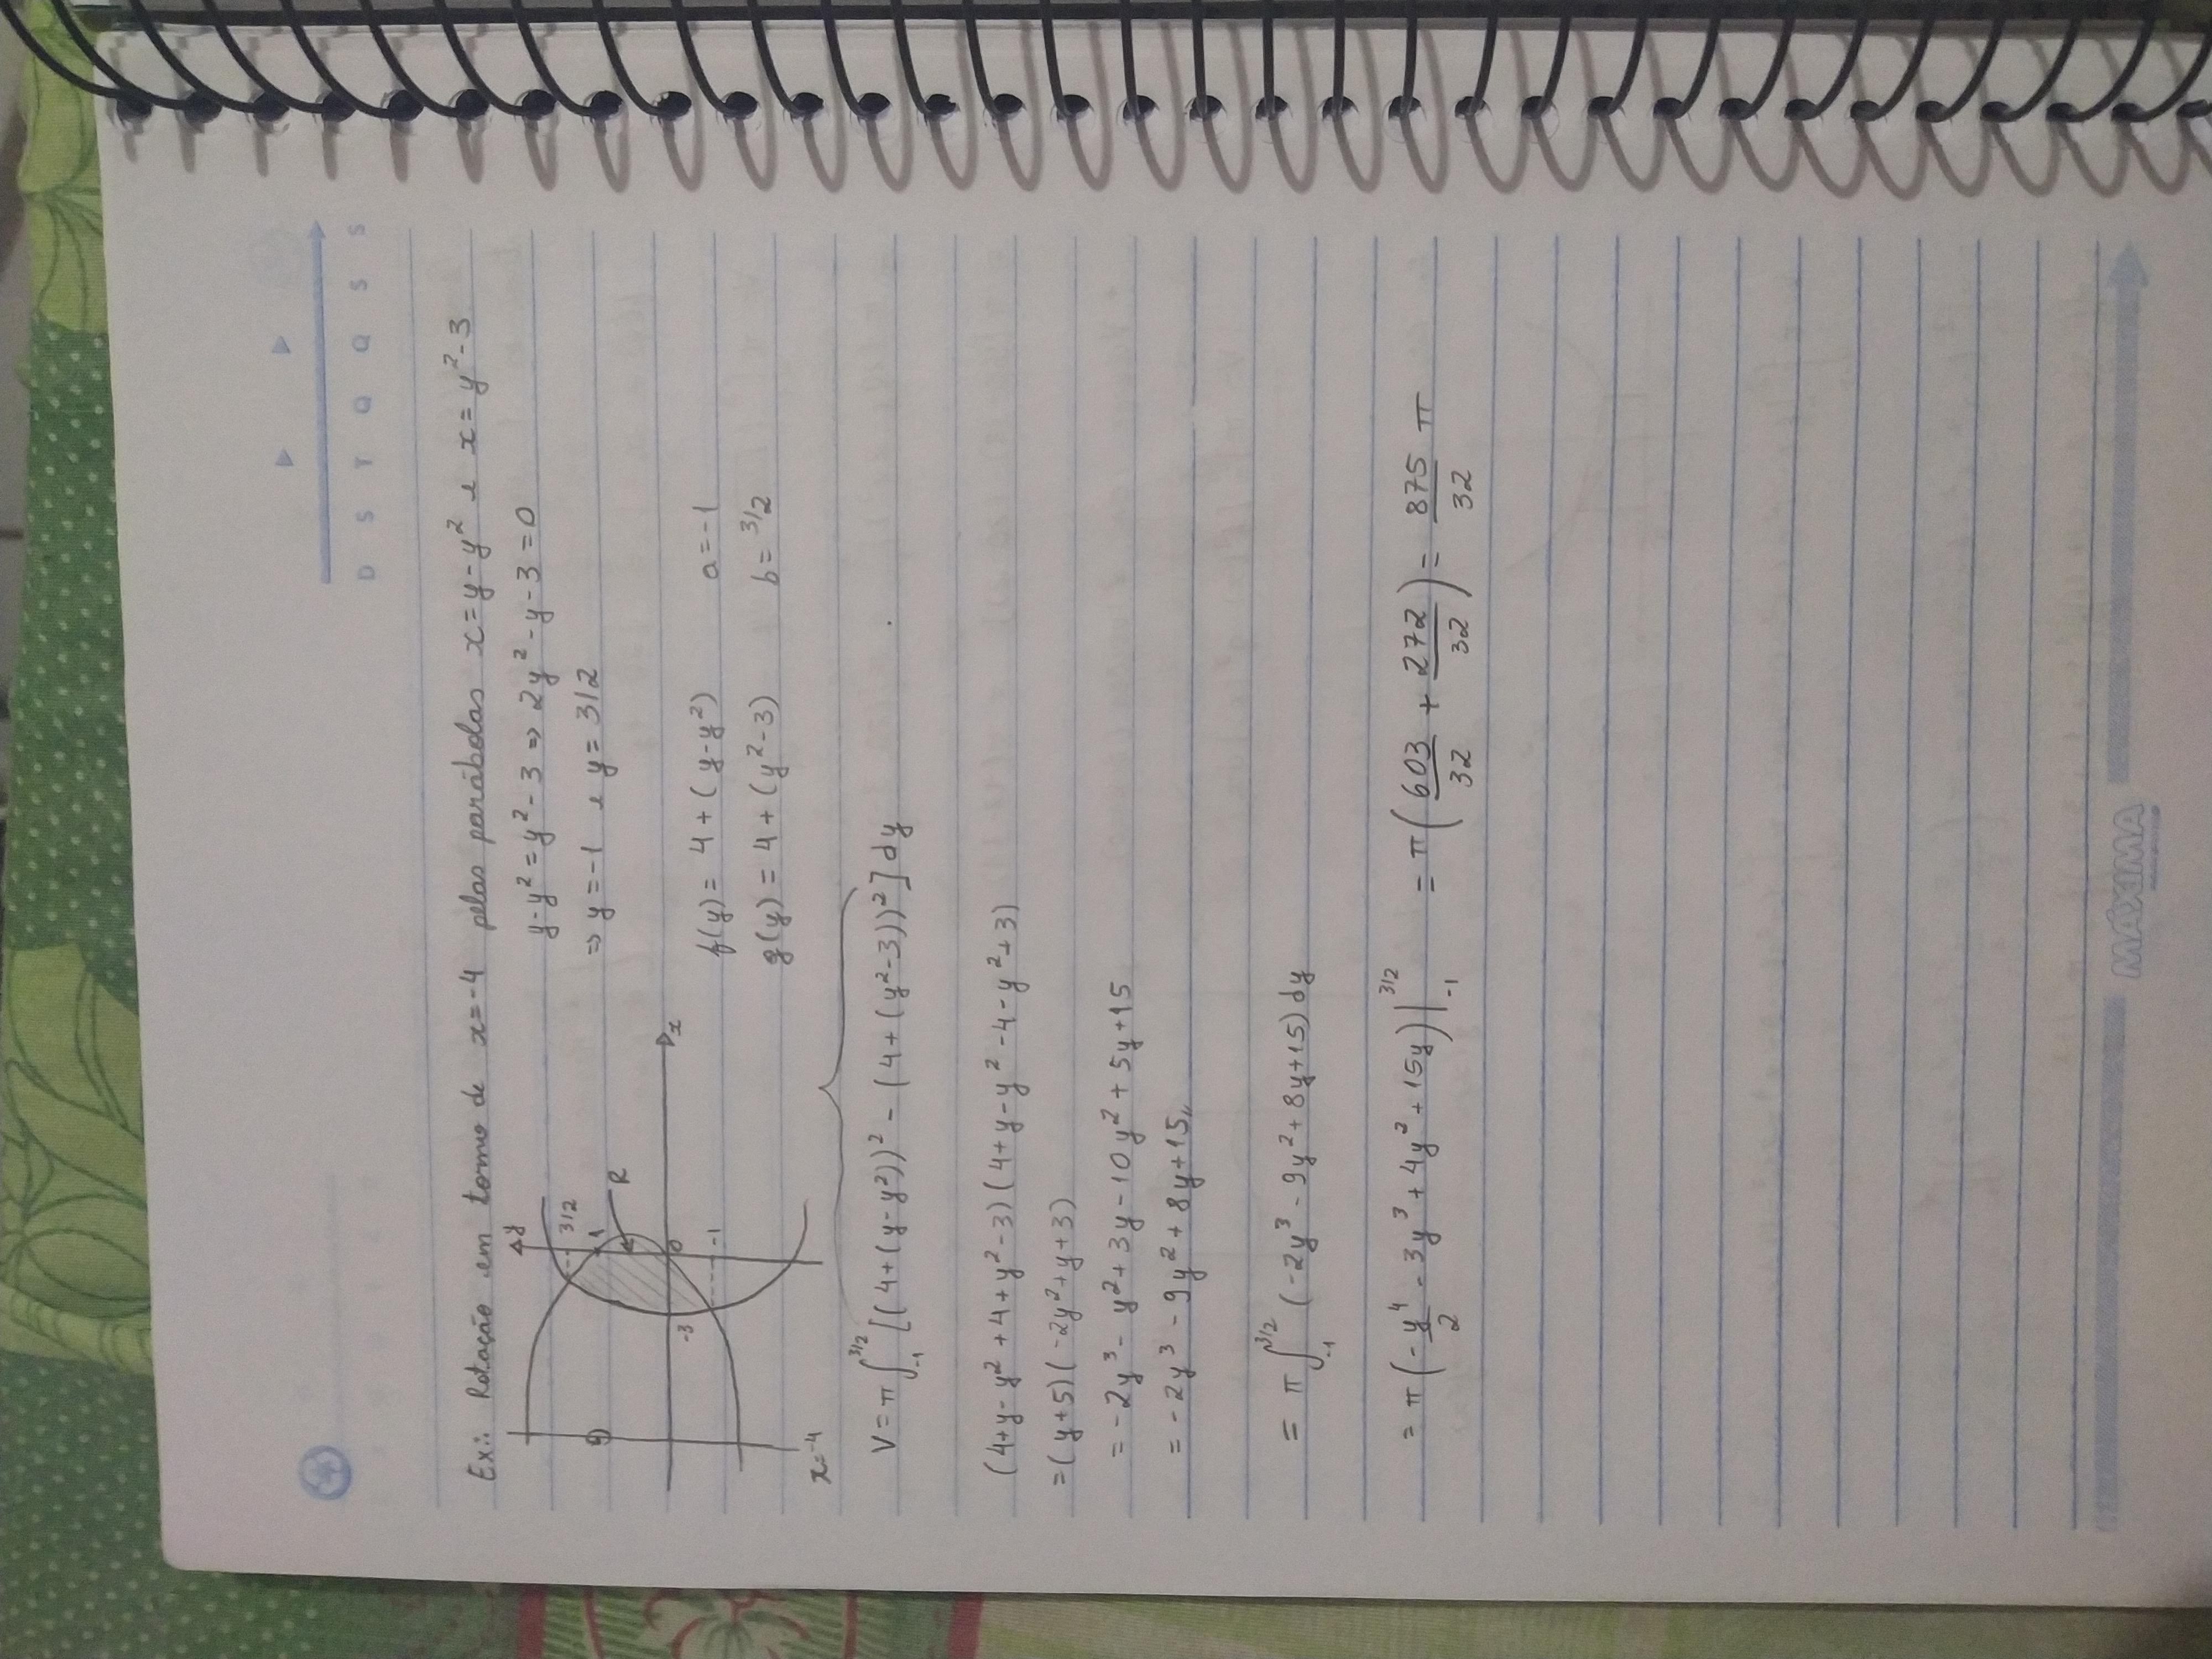 D S T Q Q S S
Ex.: Rotação em torno de x=-4 pelas parábolas x=y-y² e x=y²-3
y-y²=y²-3 ⇒ 2y²-y-3=0
⇒ y=-1 e y=3/2
y
3/2
1
R
0
x
-3
-1
x=-4
f(y) = 4+(y-y²) a=-1
g(y) = 4+(y²-3) b=3/2
V=π∫₋₁^3/2 [(4+(y-y²))² - (4+(y²-3))²] dy
(4+y-y²+4+y²-3)(4+y-y²-4-y²+3)
=(y+5)(-2y²+y+3)
= -2y³-y²+3y-10y²+5y+15
= -2y³-9y²+8y+15,,
= π∫₋₁^3/2 (-2y³-9y²+8y+15) dy
= π(-y⁴/2 - 3y³+4y²+15y)|₋₁^3/2 = π(603/32 + 272/32) = 875/32 π
MÁXIMA